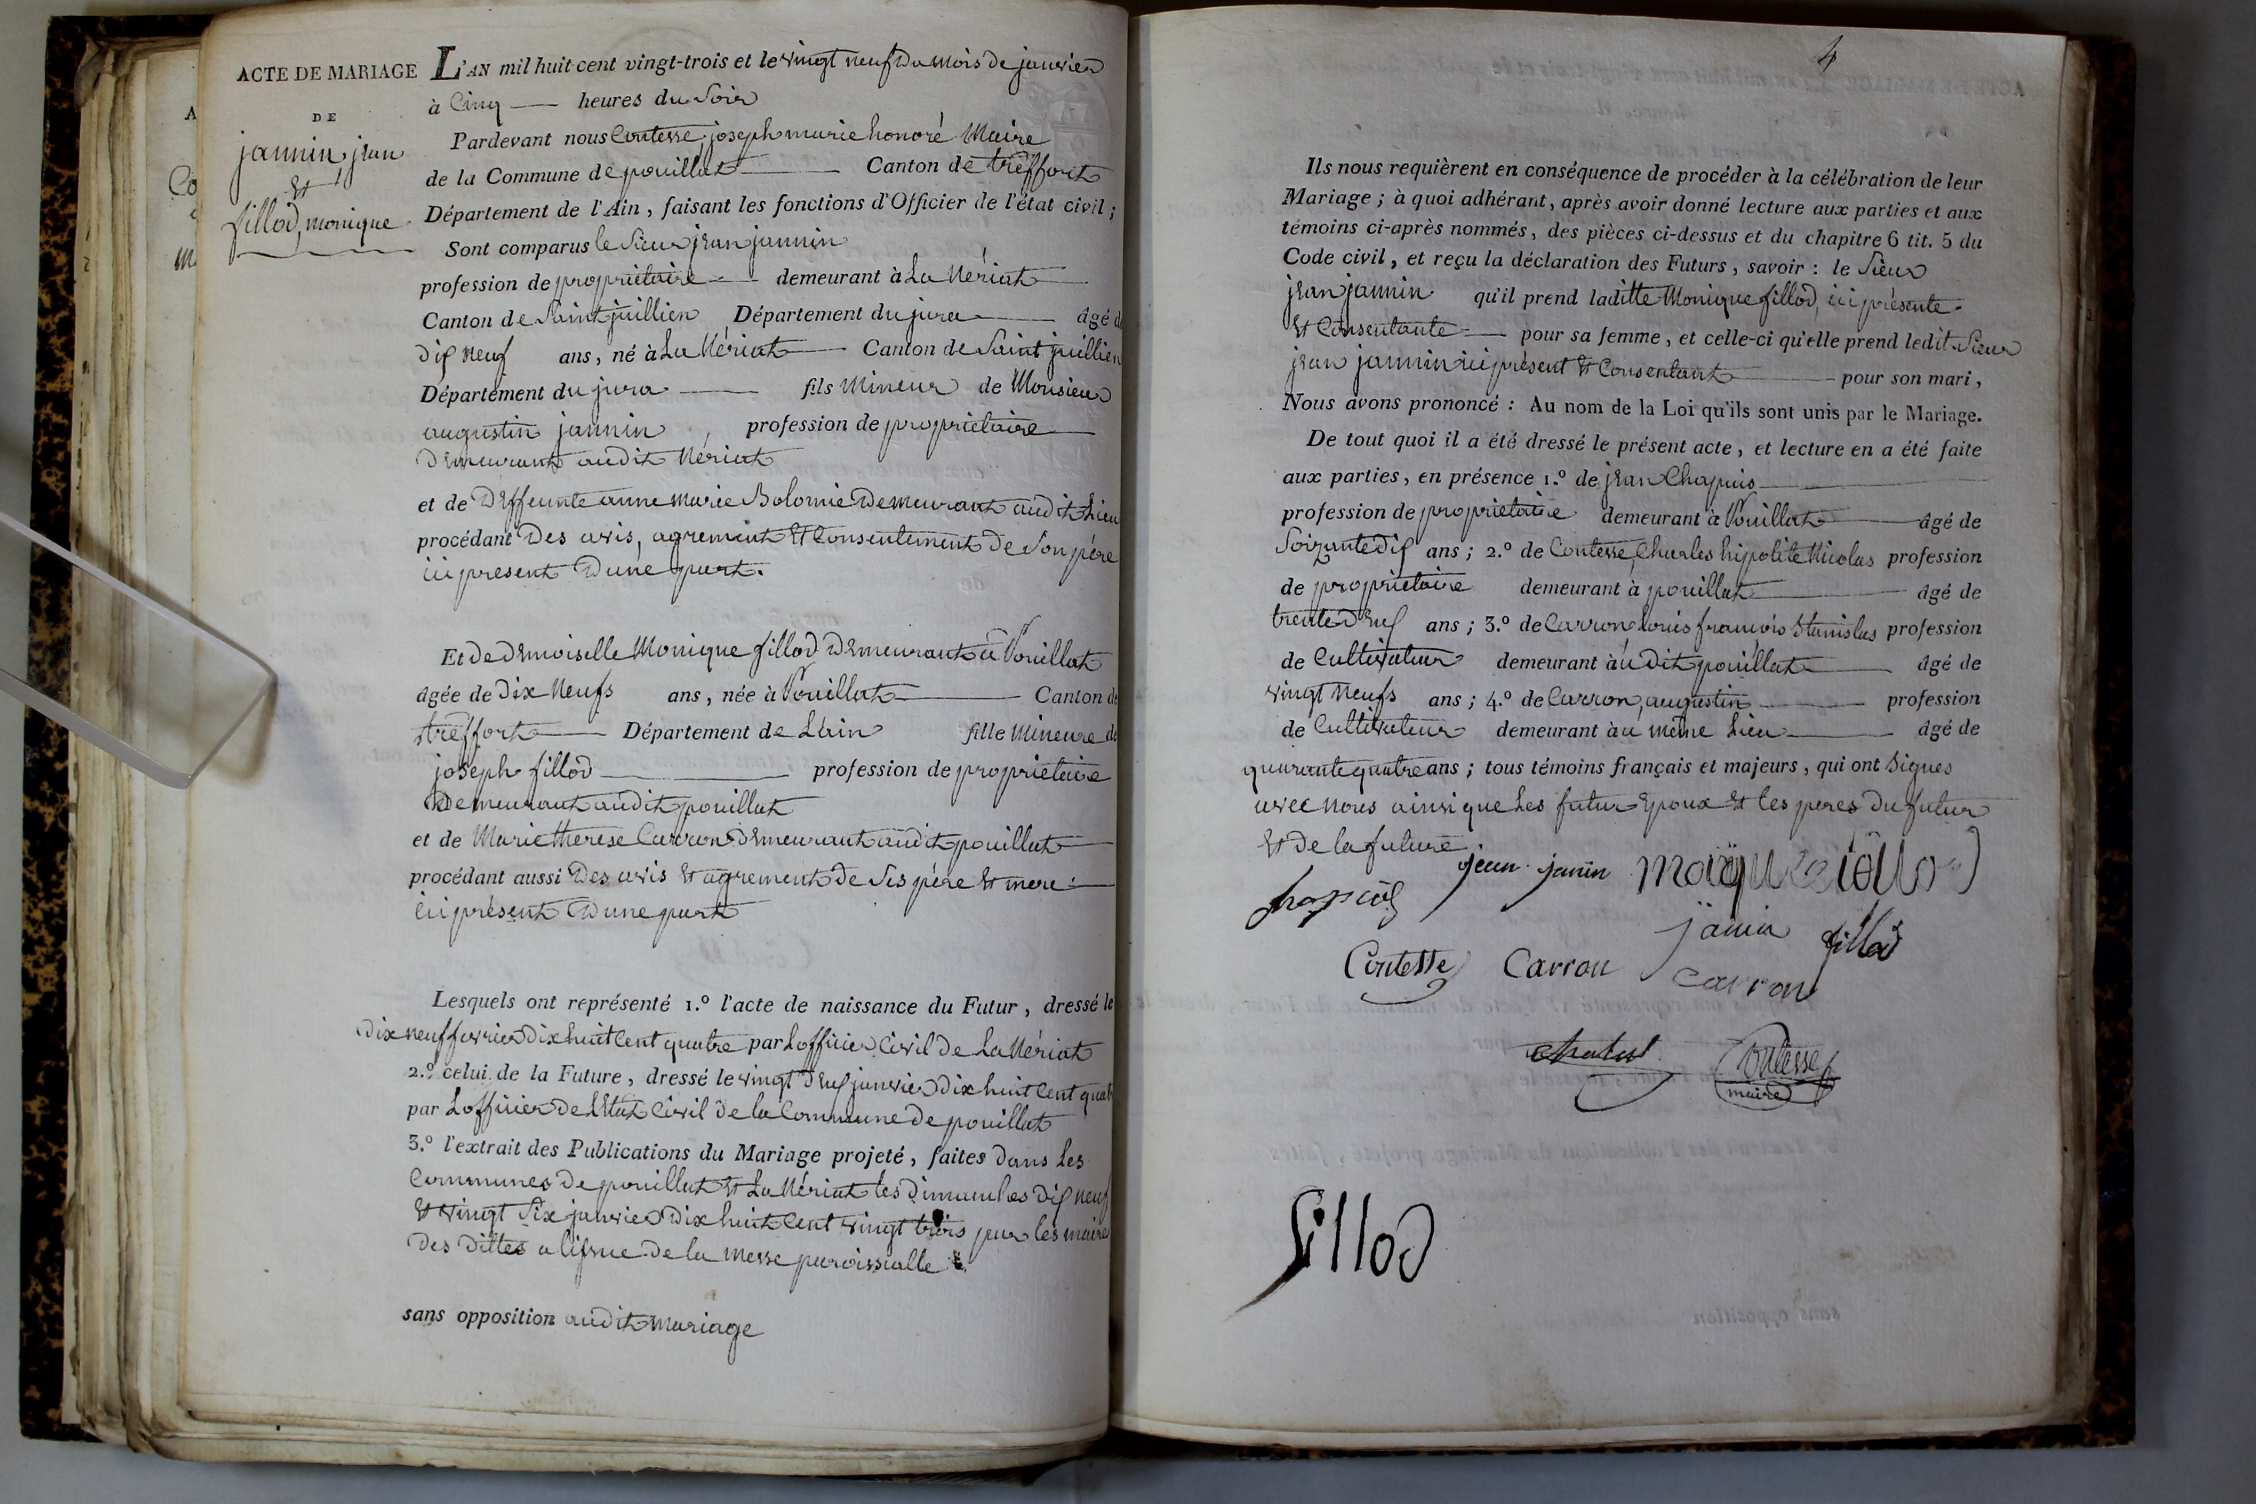 ACTE DE MARIAGE
DE
jannin, jean
et
fillod, monique
L'AN mil huit cent vingt-trois et le vingt neuf du mois de janvier
à Cinq heures du Soir
Pardevant nous Contesse, joseph marie honoré Maire
de la Commune de pouillat Canton de treffort
Département de l'Ain, faisant les fonctions d'Officier de l'état civil;
Sont comparus le Sieur jean jannin
profession de propriétaire demeurant à La Nériat
Canton de Saint juillien Département du jura âgé de
dix neuf ans, né à La Nériat Canton de Saint juillien
Département du jura fils Mineur de Monsieur
augustin jannin profession de propriétaire
Demeurant audit Nériat
et de Deffeunte anne marie Bolomie Demeurant audit Lieu
procédant Des avis, agrement et Consentement de Son père
ici present D'une part.
Et de Demoiselle Monique fillod Demeurant à Pouillat
âgée de Dix Neufs ans, née à Pouillat Canton de
treffort Département de Lain fille Mineure de
joseph fillod profession de propriétaire
Demeurant audit pouillat
et de Marie therese Carron Demeurant audit pouillat
procédant aussi Des avis et agrement de Ses père et mere
ici présent D'une part
Lesquels ont représenté 1.º l'acte de naissance du Futur, dressé le
Dix neuf fevrier Dix huit Cent quatre par Lofficier Civil de La Nériat
2.º celui de la Future, dressé le vingt Deux janvier Dix huit Cent quat
par Lofficier de Létat Civil de la Commune de pouillat
3.º l'extrait des Publications du Mariage projeté, faites Dans Les
Communes de pouillat et La Nériat les Dimanches Dix neuf
et vingt Six janvier Dix huit Cent vingt trois par les maires
Des Dittes a lissue de la messe paroissialle
sans opposition audit mariage
4
Ils nous requièrent en conséquence de procéder à la célébration de leur
Mariage; à quoi adhérant, après avoir donné lecture aux parties et aux
témoins ci-après nommés, des pièces ci-dessus et du chapitre 6 tit. 5 du
Code civil, et reçu la déclaration des Futurs, savoir: le Sieur
jean jannin qu'il prend laditte Monique fillod, ici présente
et Consentante pour sa femme, et celle-ci qu'elle prend ledit Sieur
jean jannin ici présent et Consentant pour son mari,
Nous avons prononcé: Au nom de la Loi qu'ils sont unis par le Mariage.
De tout quoi il a été dressé le présent acte, et lecture en a été faite
aux parties, en présence 1.º de jean Chapuis
profession de propriétaire demeurant à Pouillat âgé de
Soizante dix ans; 2.º de Contesse, Charles hipolite Nicolas profession
de propriétaire demeurant à pouillat âgé de
trente Deux ans; 3.º de Carron Louis françois Stanislas profession
de Cultivateur demeurant àu dit pouillat âgé de
vingt Neufs ans; 4.º de Carron, augustin profession
de Cultivateur demeurant àu même Lieu âgé de
quarante quatre ans; tous témoins français et majeurs, qui ont Signés
avec Nous ainsi que Les futur Epoux et les peres Du futur
et de la future
jean janin
Janin fillod
Contesse Carron
Carron
Contesse
maire
fillod